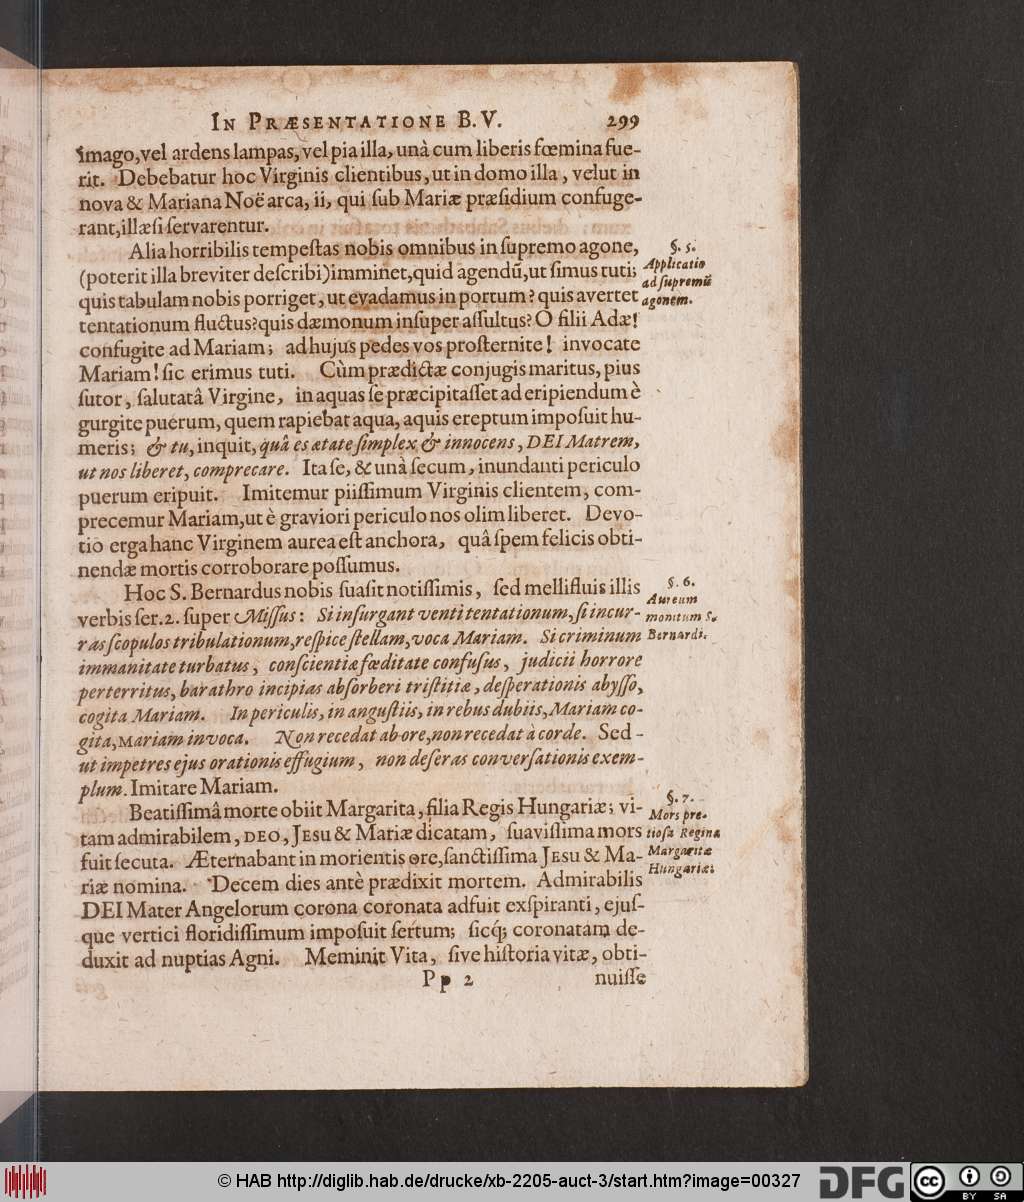 IN PRÆSENTATIONE B.V. 299
imago,vel ardens lampas, vel pia illa, unà cum liberis fœmina fue-
rit. Debebatur hoc Virginis clientibus, ut in domo illa, velut in
nova & Mariana Noë arca, ii, qui ſub Mariæ præſidium confuge-
rant, illæſi ſervarentur.
Alia horribilis tempeſtas nobis omnibus in ſupremo agone,
(poterit illa breviter deſcribi) imminet, quid agendũ, ut ſimus tuti;
quis tabulam nobis porriget, ut evadamus in portum? quis avertet
tentationum fluctus? quis dæmonum inſuper aſſultus? O filii Adæ!
confugite ad Mariam; ad hujus pedes vos proſternite! invocate
Mariam! ſic erimus tuti. Cùm prædictæ conjugis maritus, pius
ſutor, ſalutatâ Virgine, in aquas ſe præcipitaſſet ad eripiendum è
gurgite puerum, quem rapiebat aqua, aquis ereptum impoſuit hu-
meris; & tu, inquit, quâ es ætate ſimplex & innocens, DEI Matrem,
ut nos liberet, comprecare. Ita ſe, & unà ſecum, inundanti periculo
puerum eripuit. Imitemur piiſſimum Virginis clientem, com-
precemur Mariam, ut è graviori periculo nos olim liberet. Devo-
tio erga hanc Virginem aurea eſt anchora, quâ ſpem felicis obti-
nendæ mortis corroborare poſſumus.
Hoc S. Bernardus nobis ſuaſit notiſſimis, ſed mellifluis illis
verbis ſer. 2. ſuper Miſſus: Si inſurgant venti tentationum, ſi incur-
ras ſcopulos tribulationum, reſpice ſtellam, voca Mariam. Si criminum
immanitate turbatus, conſcientiæ fœditate confuſus, judicii horrore
perterritus, barathro incipias abſorberi triſtitiæ, deſperationis abyſſo,
cogita Mariam. In periculis, in anguſtiis, in rebus dubiis, Mariam co-
gita, Mariam invoca. Non recedat ab ore, non recedat à corde. Sed
ut impetres ejus orationis effugium, non deſeras converſationis exem-
plum. Imitare Mariam.
Beatiſſimâ morte obiit Margarita, filia Regis Hungariæ; vi-
tam admirabilem, DEO, JESU & Mariæ dicatam, ſuaviſſima mors
fuit ſecuta. Æternabant in morientis ore, ſanctiſſima JESU & Ma-
riæ nomina. Decem dies antè prædixit mortem. Admirabilis
DEI Mater Angelorum corona coronata adfuit exſpiranti, ejuſ-
que vertici floridiſſimum impoſuit ſertum; ſicq́; coronatam de-
duxit ad nuptias Agni. Meminit Vita, ſive hiſtoria vitæ, obti-
Pp 2 nuiſſe
§. 5.
Applicatio
ad ſupremũ
agonem.
§. 6.
Aureum
monitum S.
Bernardi.
§. 7.
Mors pre-
tioſa Reginæ
Margaritæ
Hungariæ.
© HAB http://diglib.hab.de/drucke/xb-2205-auct-3/start.htm?image=00327
DFG
cc
BY
SA